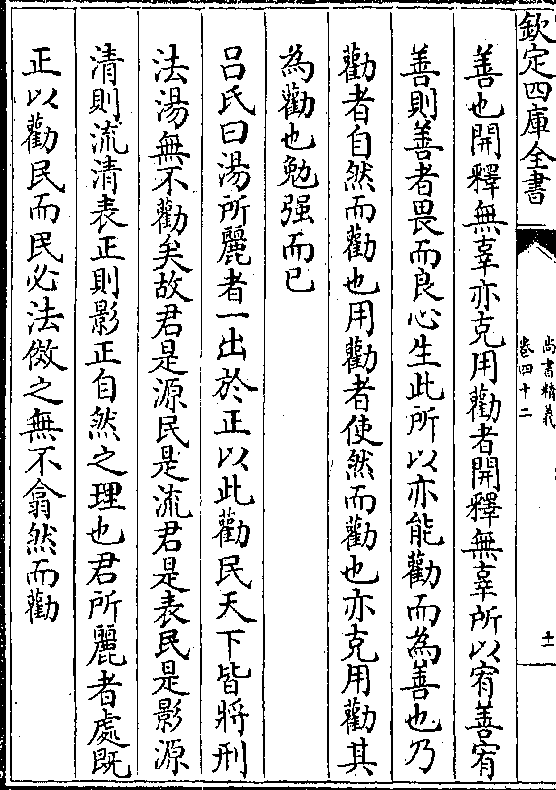 欽定四庫全書
尚書精義
卷四十二
十一
善也開釋無辜亦克用勸者開釋無辜所以宥善宥
善則善者畏而良心生此所以亦能勸而為善也乃
勸者自然而勸也用勸者使然而勸也亦克用勸其
為勸也勉强而已
呂氏曰湯所麗者一出於正以此勸民天下皆將刑
法湯無不勸矣故君是源民是流君是表民是影源
清則流清表正則影正自然之理也君所麗者處既
正以勸民而民必法傚之無不翕然而勸